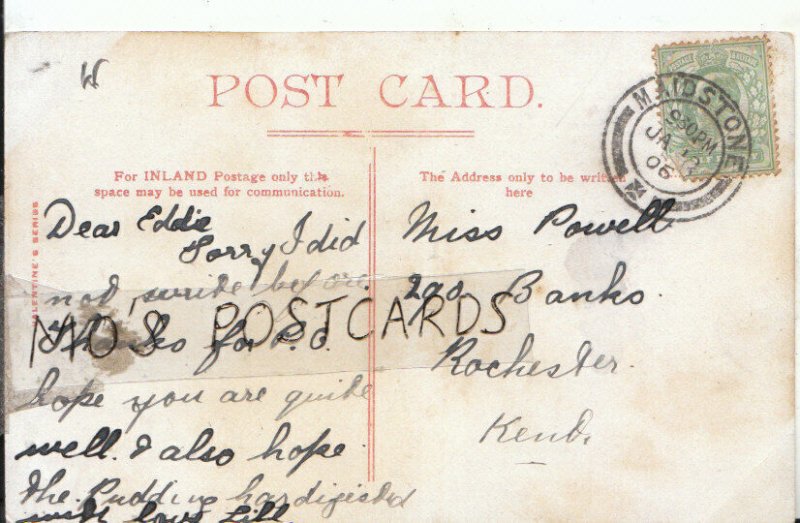 W
POST CARD.
For INLAND Postage only this
space may be used for communication.
The Address only to be written
here
VALENTINE'S SERIES
MAIDSTONE
9 30 PM
JA
06
Dear Eddie
Sorry I did
not write before.
Thanks for P.C.
hope you are quite
well. & also hope
the Pudding has digested
with love Lill.
Miss Powell
Banks.
Rochester.
Kent.
MO'S POSTCARDS